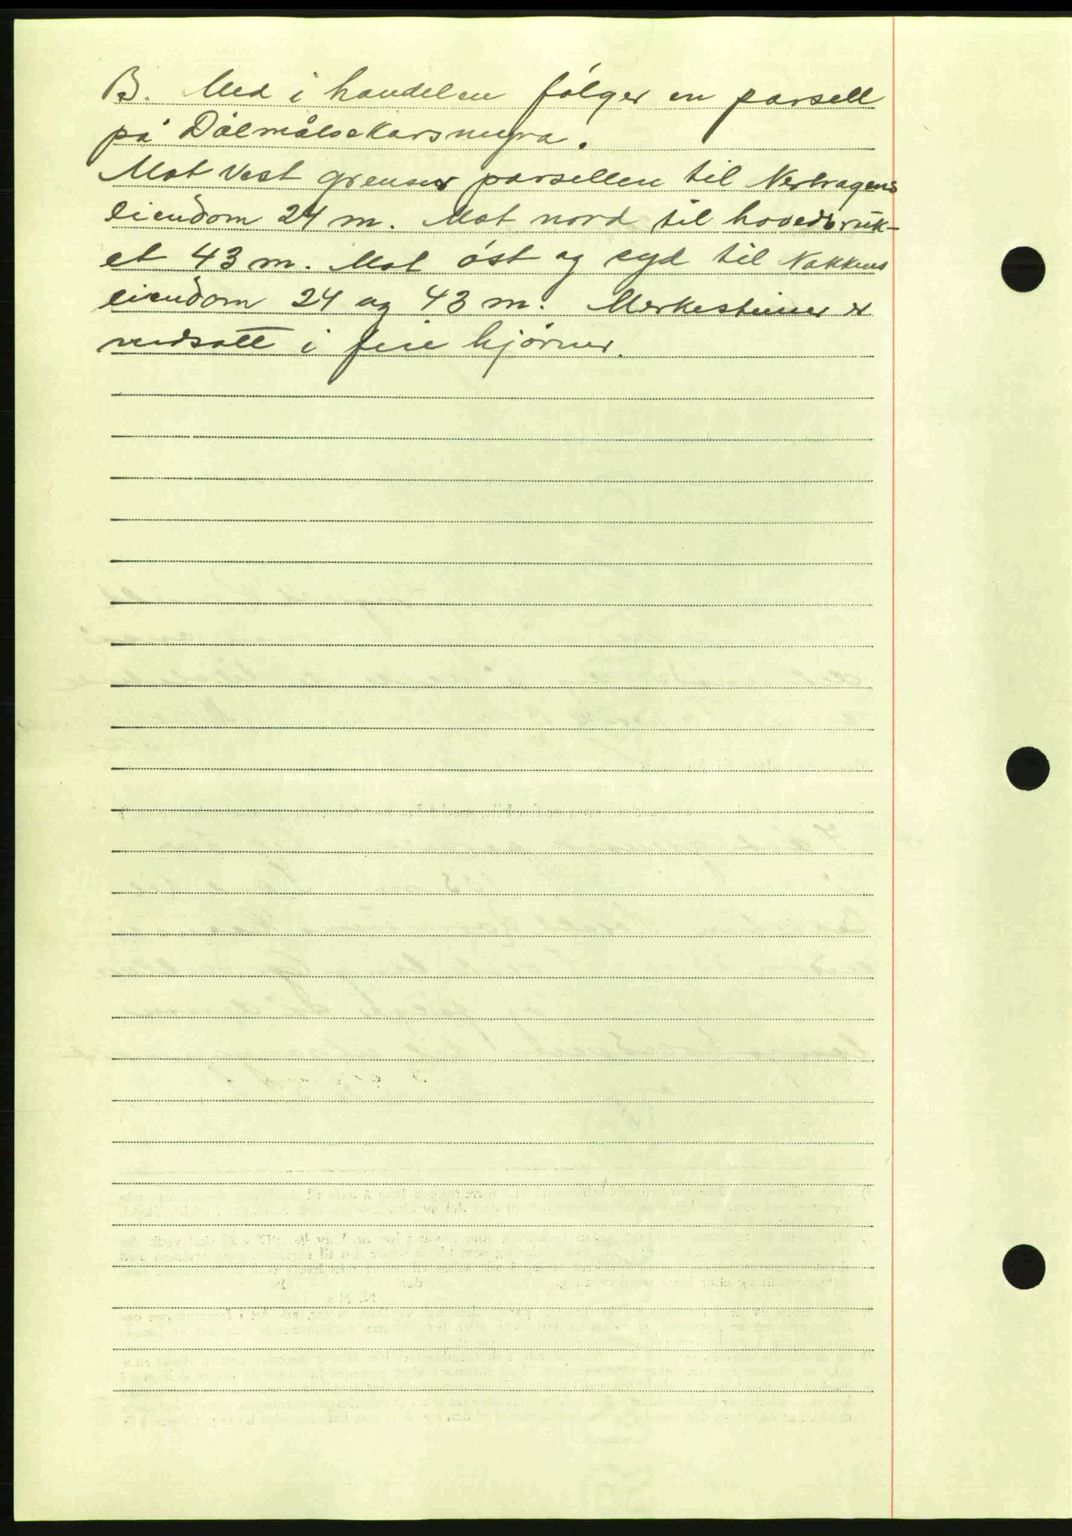 B. Med i handelen følger en parsell
på Dølmålsekarsmyra.
Mot vest grenser parsellen til Nertragens
eiendom 24 m. Mot nord til hovedbruk-
et 43 m. Mot øst og syd til Nakkens
eiendom 24 og 43 m. Merkesteiner er
nedsatt i fire hjørner.